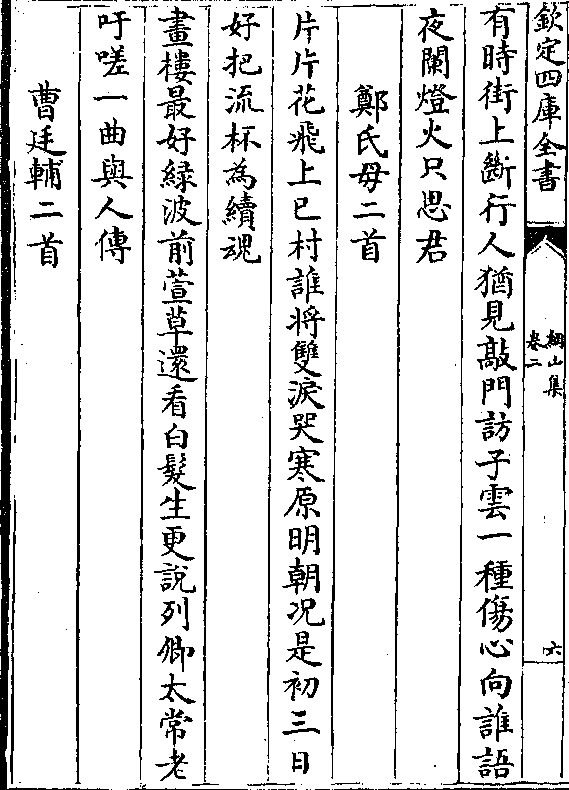 欽定四庫全書
綱山集
卷二
六
有時街上斷行人猶見敲門訪子雲一種傷心向誰語
夜闌燈火只思君
鄭氏母二首
片片花飛上巳村誰將雙淚哭寒原明朝况是初三日
好把流杯為續魂
畫樓最好緑波前萱草還看白髮生更說列卿太常老
吁嗟一曲與人傳
曹廷輔二首